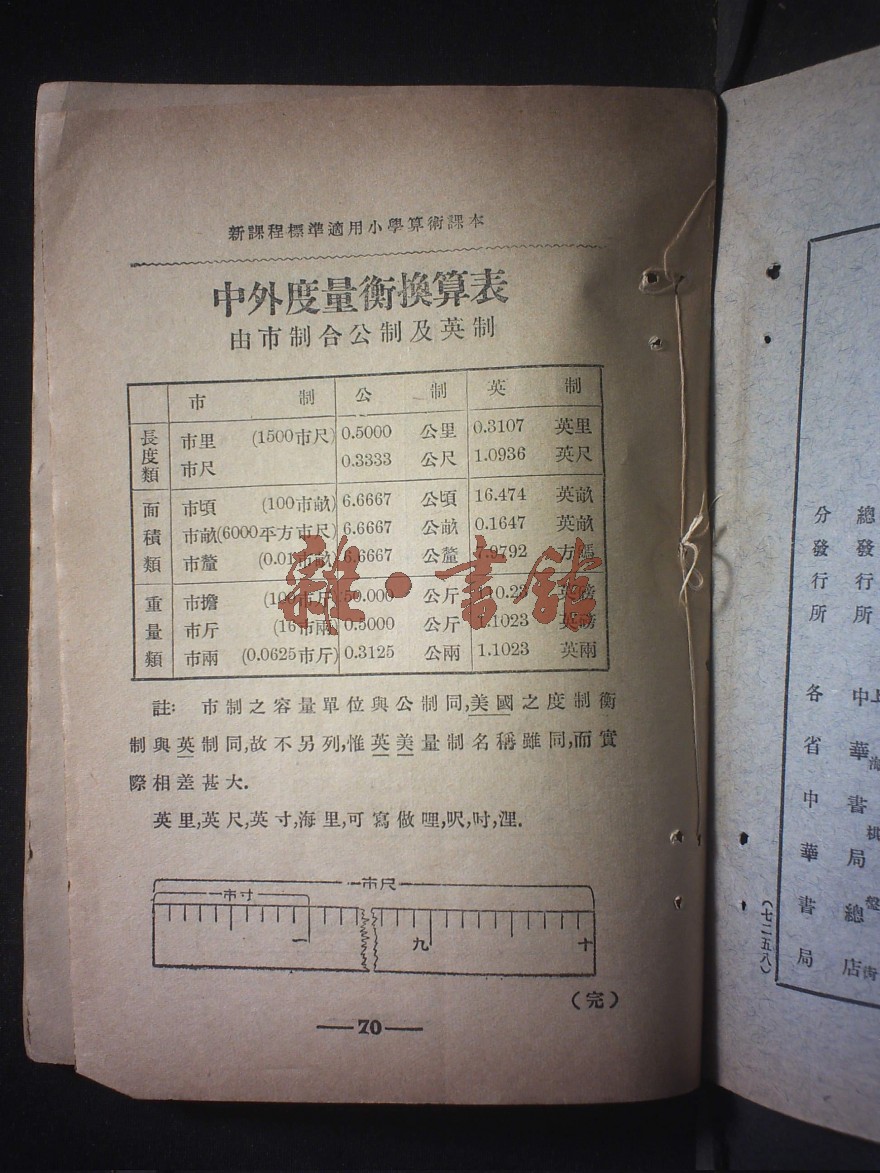 新課程標準適用小學算術課本
中外度量衡換算表
由市制合公制及英制
市制 公制 英制
長度類
市里 (1500市尺) 0.5000 公里 0.3107 英里
市尺 0.3333 公尺 1.0936 英尺
面積類
市頃 (100市畝) 6.6667 公頃 16.474 英畝
市畝(6000平方市尺) 6.6667 公畝 0.1647 英畝
市釐 (0.01市畝) 6.6667 公釐 7.9792 方碼
重量類
市擔 (100市斤) 50.000 公斤 110.23 英磅
市斤 (16市兩) 0.5000 公斤 1.1023 英磅
市兩 (0.0625市斤) 0.3125 公兩 1.1023 英兩
註: 市制之容量單位與公制同,美國之度制衡
制與英制同,故不另列,惟英美量制名稱雖同,而實
際相差甚大.
英里,英尺,英寸,海里,可寫做哩,呎,吋,浬.
一市尺
一市寸
一 九 十
(完)
—70—
雜·書館
總發行所 上海 棋盤街
中華書局總店
分發行所 各省中華書局
(七二五八)